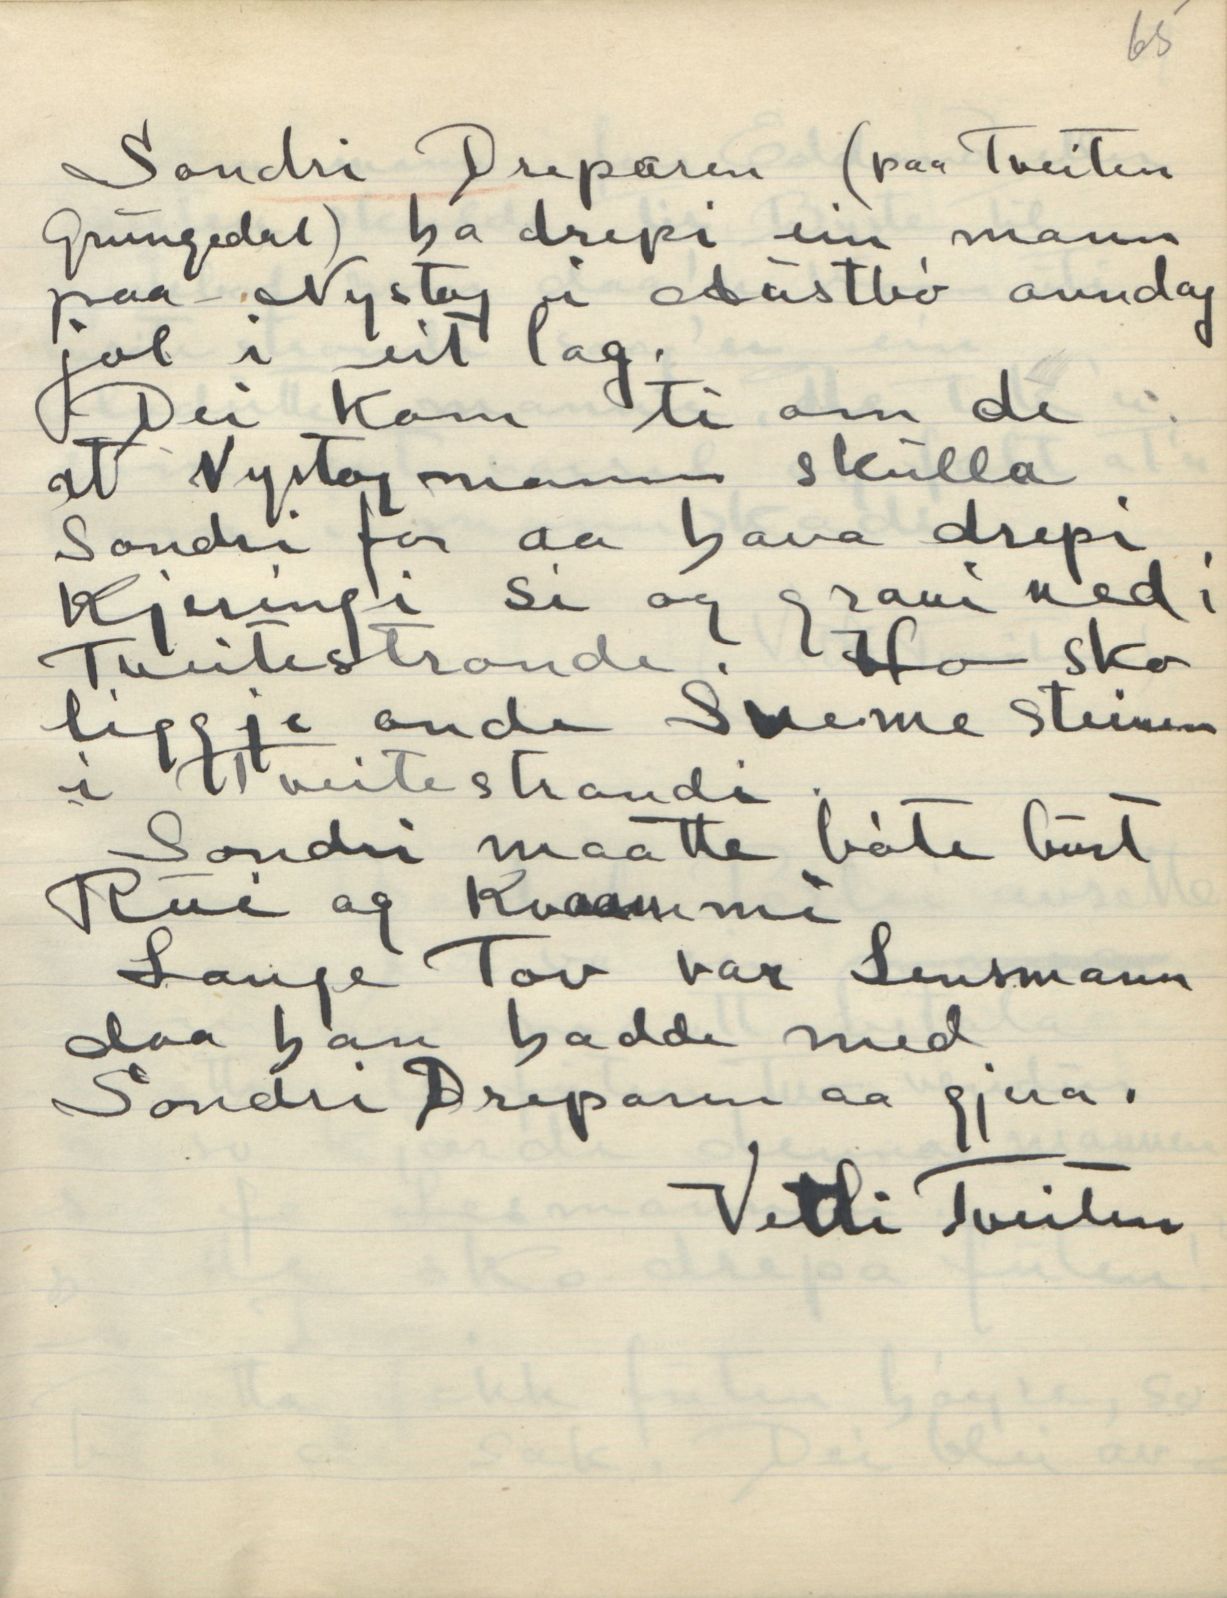 65
Sondri Dreparen (paa Tveiten
Grungedal) ha drepi ein mann
paa Nystog i Austbø anndag
jol i eit lag.
Dei kom ti om de
at Nystogmann skulla
Sondri for aa hava drepi
Kjeringi si og gravi ned i
Tveitestronde. Ho sko
liggje onde Sveme steinen
i Tveitestrandi.
Sondri maatte bóte burt
Rui og Kvaammi
Lange Tov var Lensmann
daa han hadde med
Sondri Dreparen aa gjera.
Vetli Tveiten